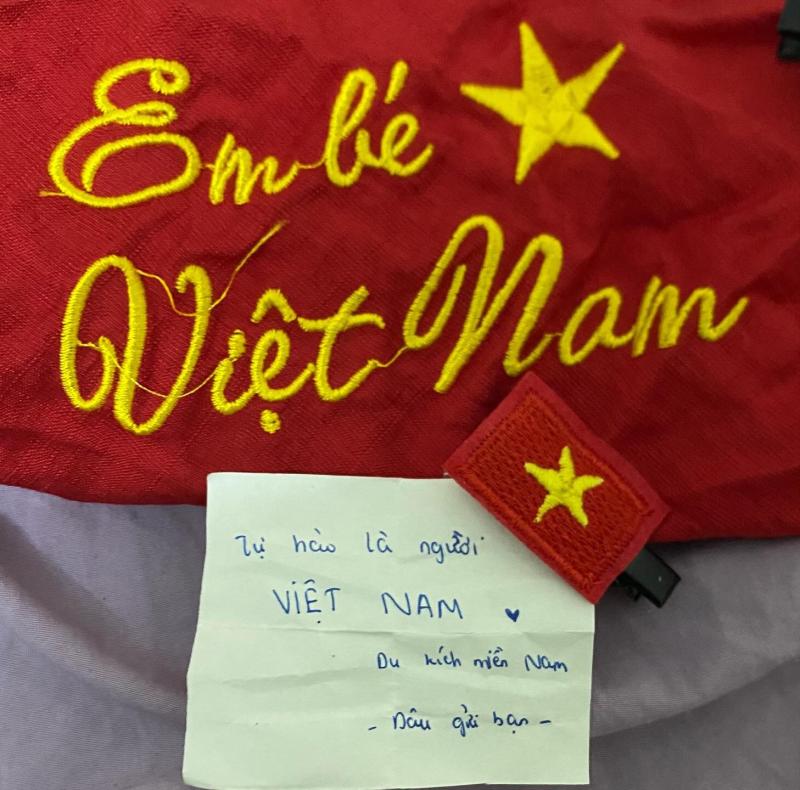 Em bé
Việt Nam
Tự hào là người
VIỆT NAM
Du kích miền Nam
- Dâu gửi bạn -